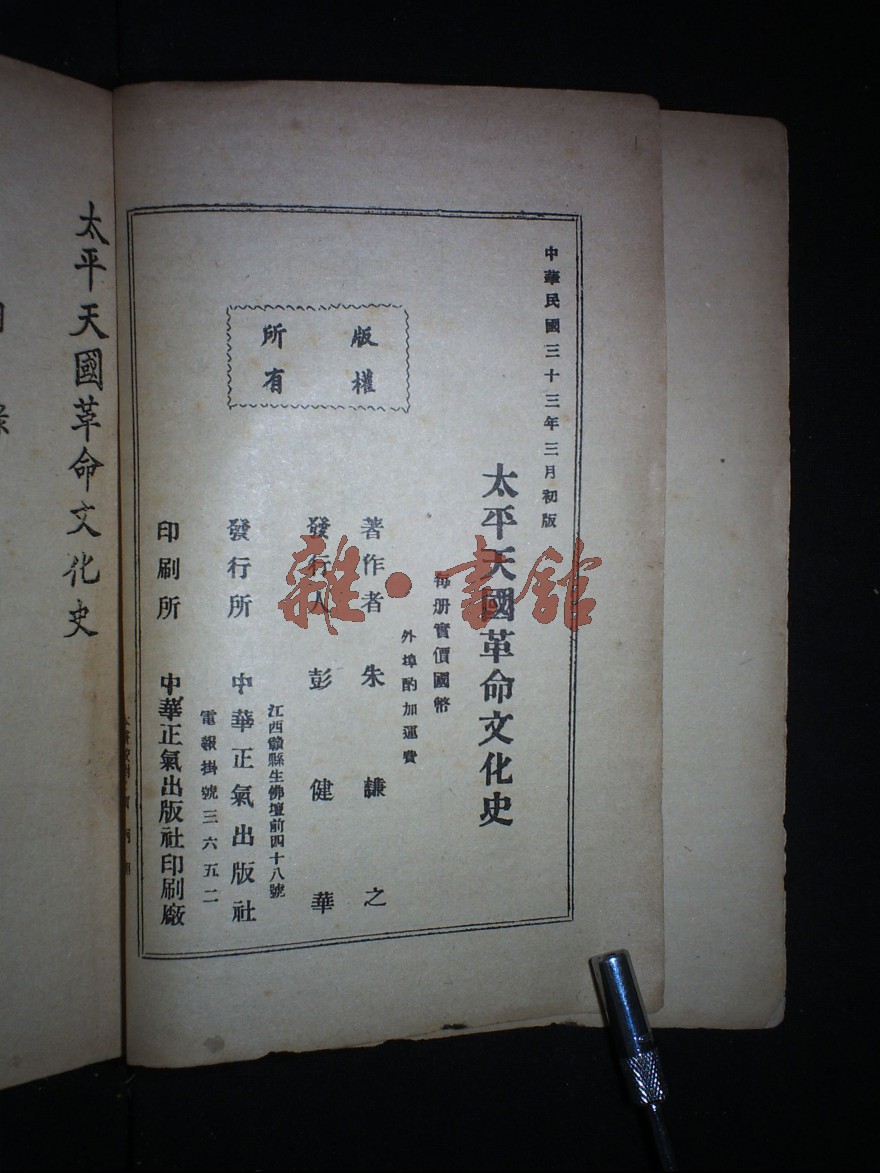 中華民國三十三年三月初版
太平天國革命文化史
每册實價國幣
外埠酌加運費
著作者 朱謙之
發行人 彭健華
江西贛縣生佛壇前四十八號
發行所 中華正氣出版社
電報掛號三六五二
印刷所 中華正氣出版社印刷廠
版權
所有
太平天國革命文化史
雜·書館